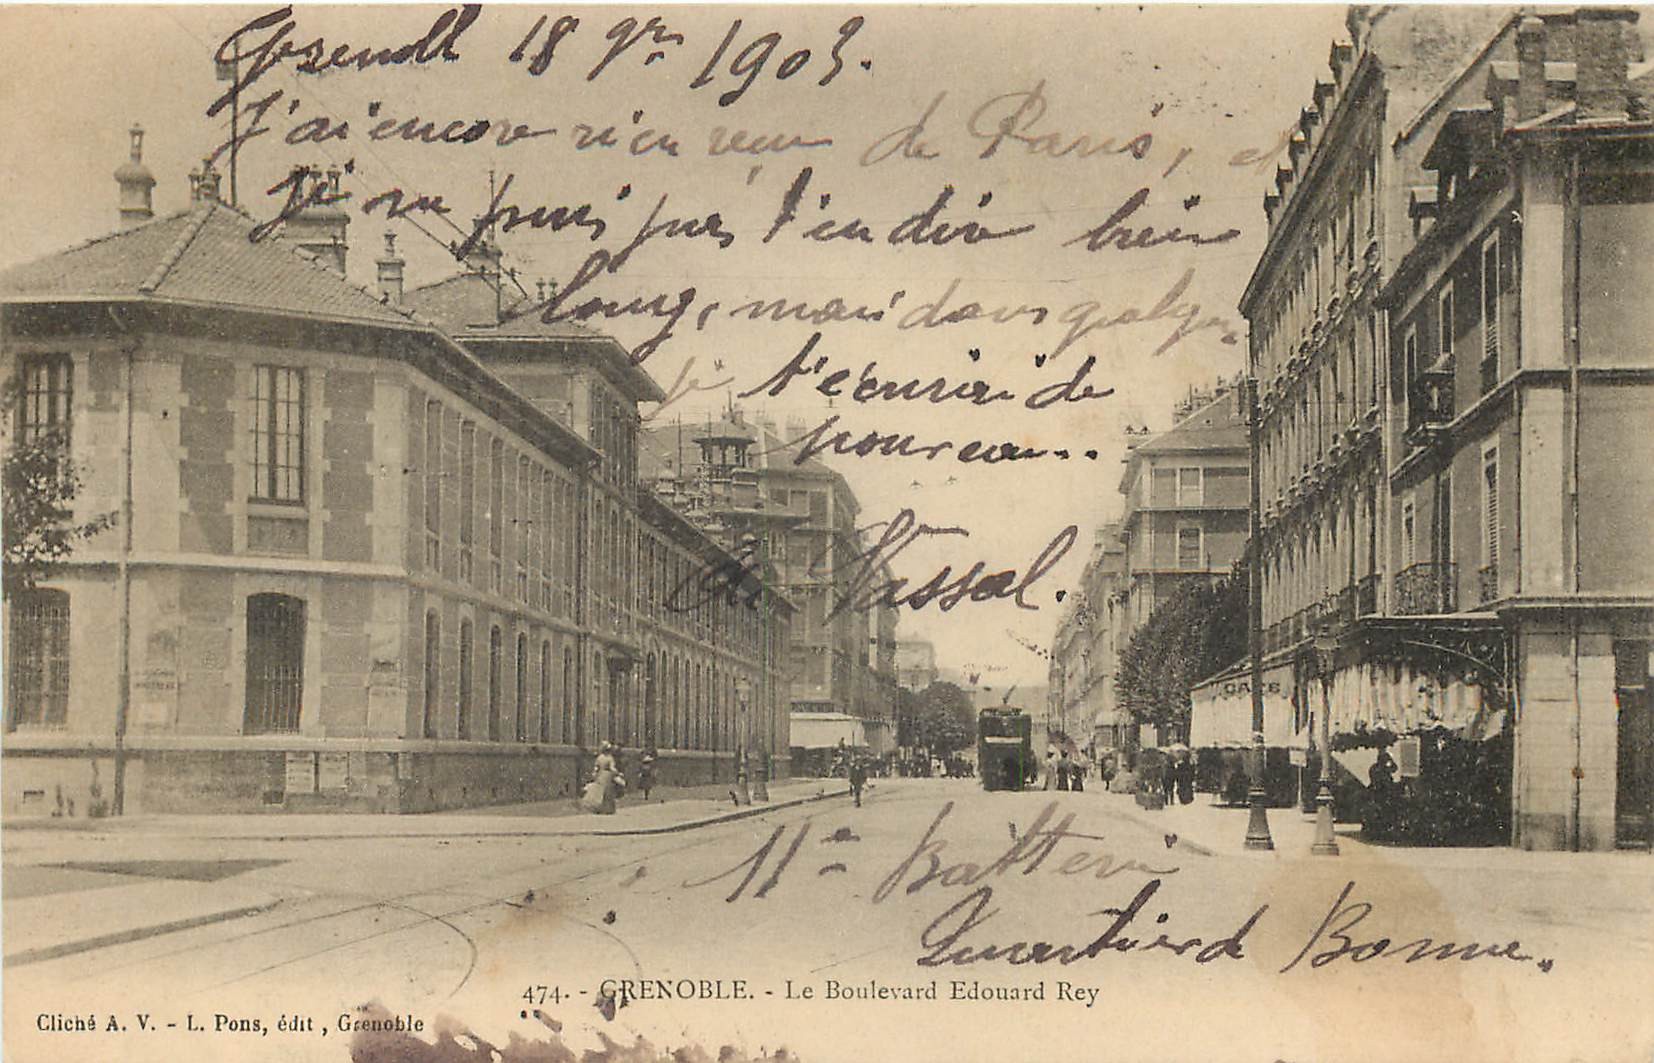 Grenoble 18 9re 1903.
J'ai encore rien reçu de Paris, et
je ne puis pas t'en dire bien
long, mais dans quelques
je t'écrirai de
nouveau..
Vassal.
11e Batterie
Quartier de Bonne.
CAFE
474. - GRENOBLE. - Le Boulevard Edouard Rey
Cliché A. V. - L. Pons, édit, Grenoble